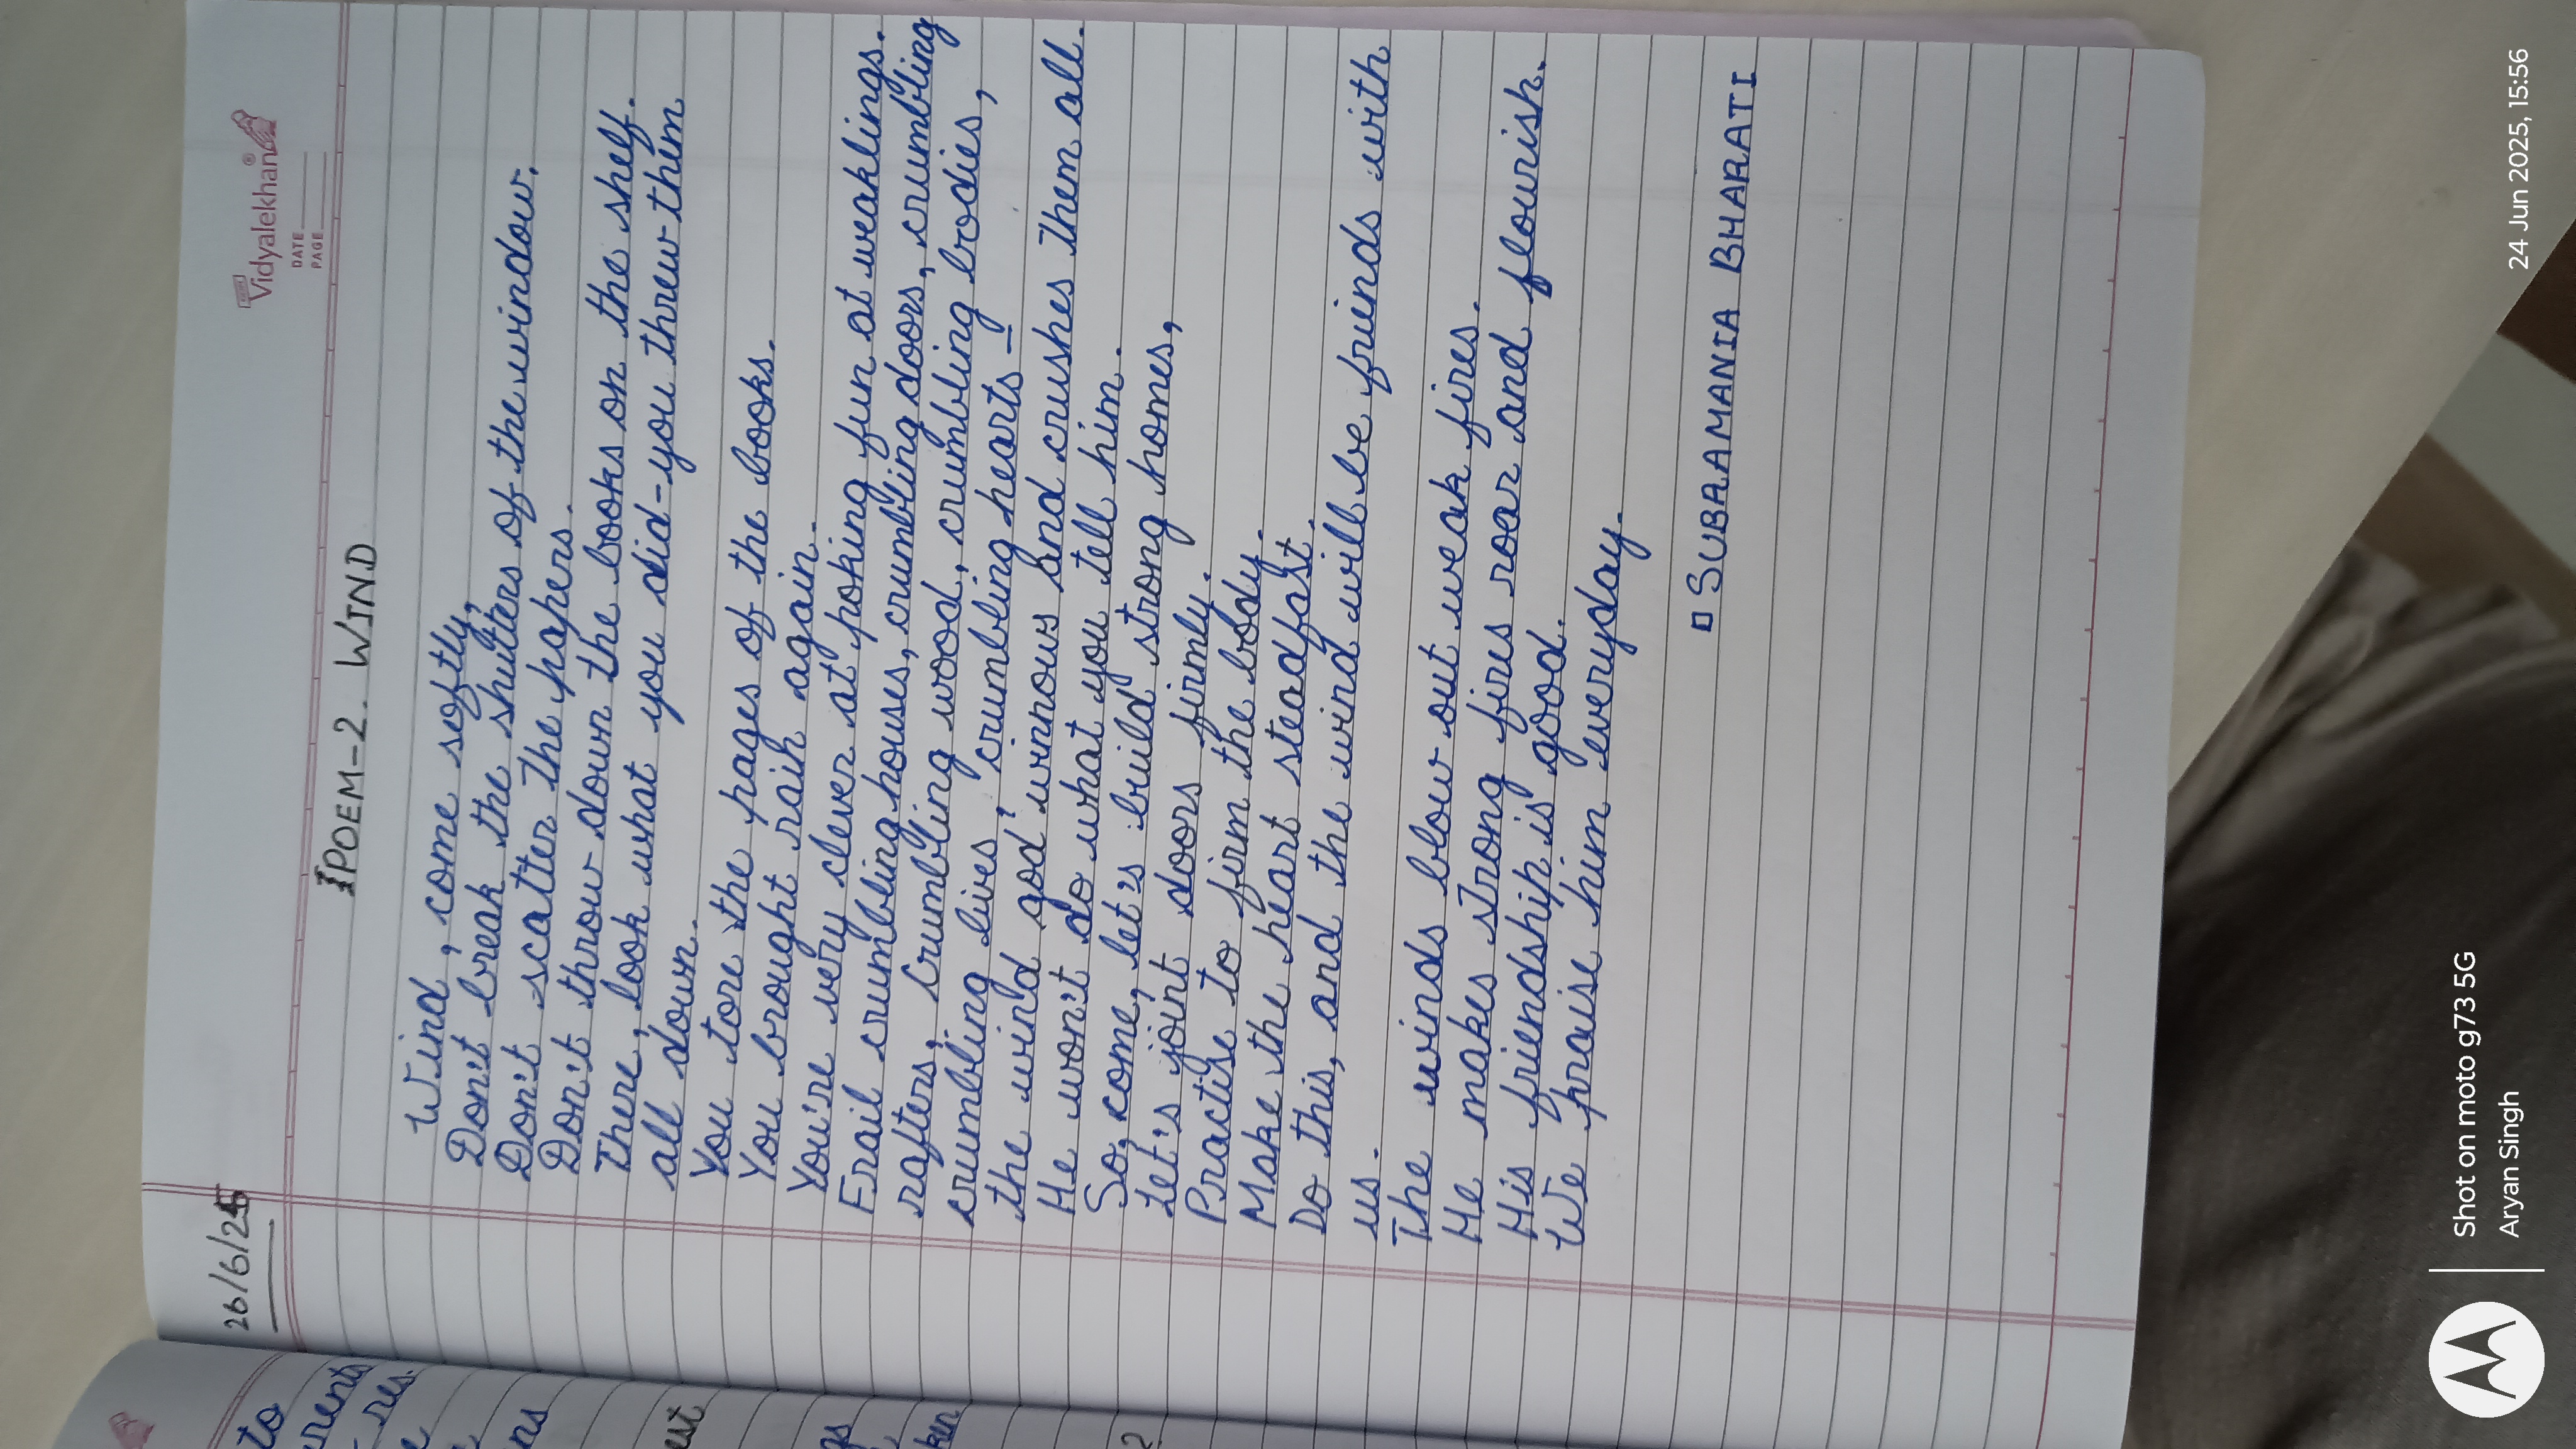 26/6/25
NEW
Vidyalekhan®
DATE
PAGE
POEM-2. WIND
Wind, come softly,
Don't break the shutters of the window.
Don't scatter the papers.
Don't throw down the books on the shelf.
There, look what you did-you threw them
all down.
You tore the pages of the books.
You brought rain again.
You're very clever at poking fun at weaklings.
Frail crumbling houses, crumbling doors, crumbling
rafters, crumbling wood, crumbling bodies,
crumbling lives, crumbling hearts-
the wind god winnows and crushes them all.
He won't do what you tell him.
So, come, let's build strong homes,
Let's joint doors firmly.
Practise to firm the body.
Make the heart steadfast.
Do this, and the wind will be friends with
us.
The winds blow out weak fires.
He makes strong fires roar and flourish.
His friendship is good.
We praise him everyday.
SUBRAMANIA BHARATI
to
2
Shot on moto g73 5G
Aryan Singh
24 Jun 2025, 15:56